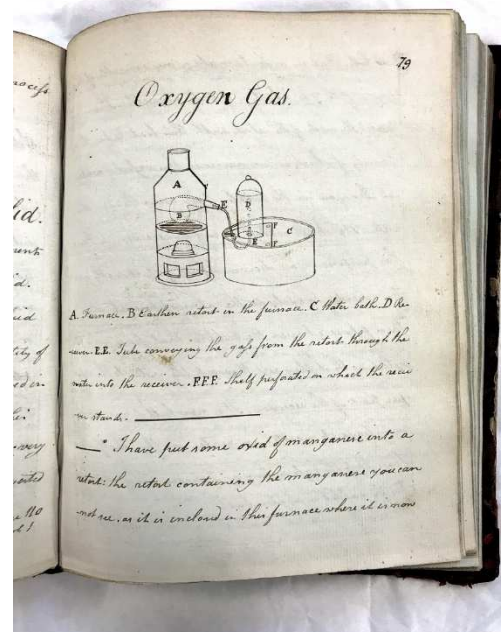 ocess
id.
ments
d.
id
ity of
ed in
he
very
ected
110
d!
79
Oxygen Gas.
A
B
E
D
E
F
F
C
A. Furnace. B Earthen retort in the furnace. C Water bath. D Re-
ceiver. E.E. Tube conveying the gass from the retort through the
water into the receiver. F.F.F. Shelf perforated on which the recei
ver stands.
" I have put some oxid of manganese into a
retort: the retort containing the manganese you can
not see. as it is inclosd in this furnace where it is now